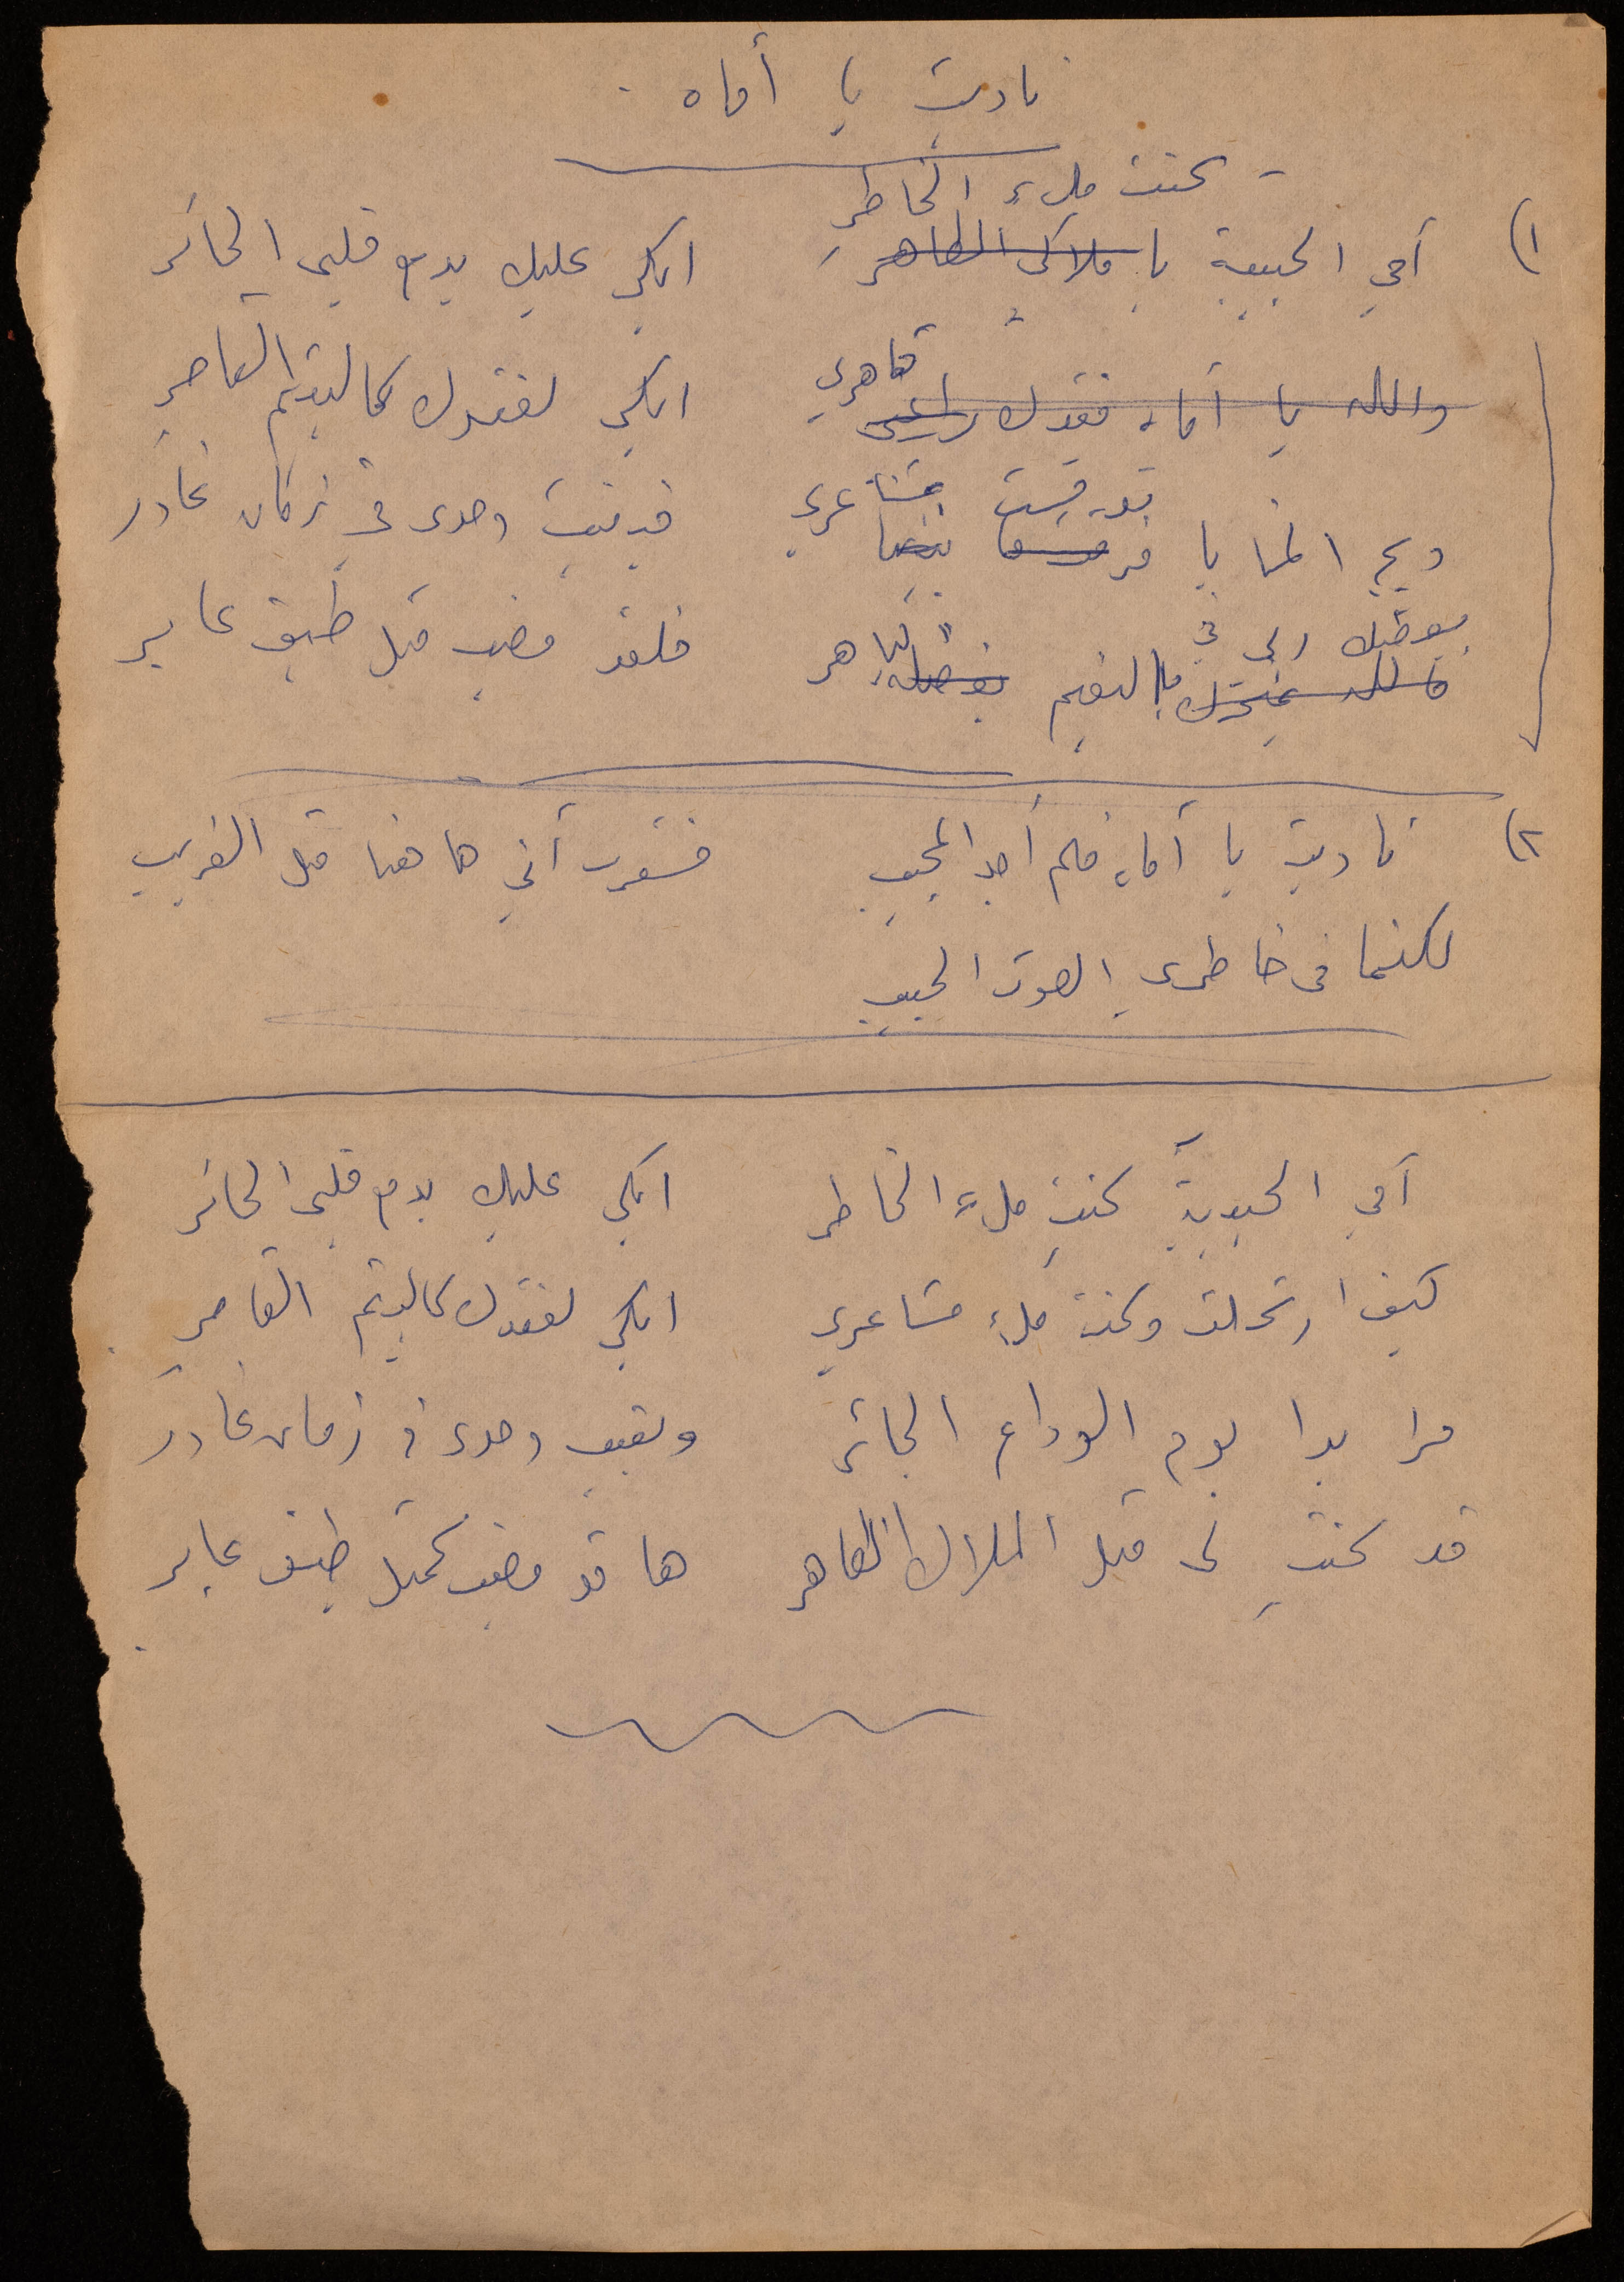 ناديت يا أماه .
- كنت ملء الخاطر
١) أمي الحبيبة يا ملاكي الطاهر ابكي عليك بدمع قلبي الحائر
قاهري
والله يا أماه فقدك راعني ابكي لفقدك كاليتيم القاصر
قد قست مشاعري
ويح المنايا فبقيت وحدي في زمان غادر
يعوضك ربي في
بالنعيم الباهر فلقد مضيت مثل طيف عابر
٢) ناديت يا أماه فلم أجد المجيب فشعرت أني ها هنا مثل الغريب
لكنما في خاطري الصوت الحبيب
أمي الحبيبة كنتِ ملء الخاطر ابكي عليك بدمع قلبي الحائر
كيف ارتحلت وكنت ملء مشاعري ابكي لفقدك كاليتيم القاصر
مرا بدا يوم الوداع الجائر وبقيت وحدي في زمان غادر
قد كنتِ لي مثل الملاك الطاهر ها قد مضيت كمثل طيف عابر